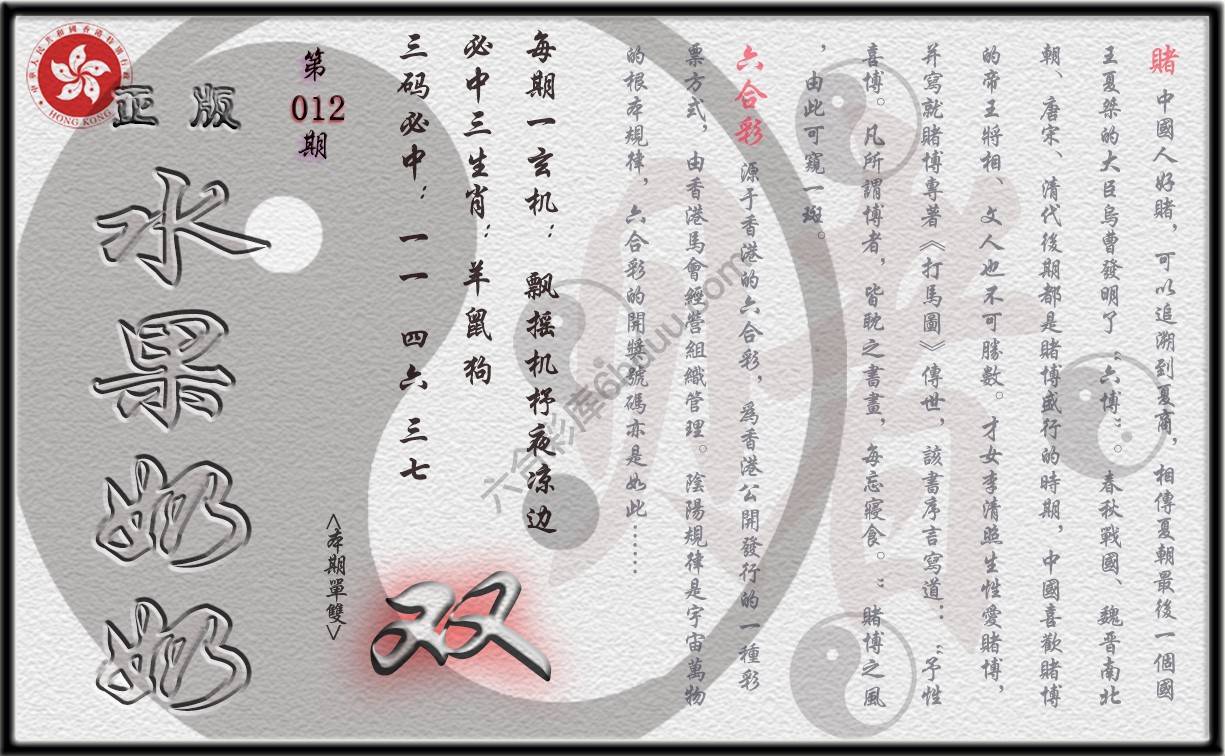 賭 中國人好賭，可以追溯到夏商，相傳夏朝最後一個國
王夏桀的大臣烏曹發明了“六博”。春秋戰國、魏晉南北
朝、唐宋、清代後期都是賭博盛行的時期，中國喜歡賭博
的帝王將相、文人也不可勝數。才女李清照生性愛賭博，
并寫就賭博專著《打馬圖》傳世，該書序言寫道：“予性
喜博。凡所謂博者，皆耽之書畫，每忘寢食。”賭博之風
，由此可窺一斑。
六合彩 源于香港的六合彩，為香港公開發行的一種彩
票方式，由香港馬會經營組織管理。陰陽規律是宇宙萬物
的根本規律，六合彩的開獎號碼亦是如此……
每期一玄机：飘摇机杼夜凉边
必中三生肖：羊鼠狗
三码必中：一一 四六 三七
<本期單雙>
双
第
012
期
正版
水果奶奶
中華人民共和國香港特別行政區
HONG KONG
六合彩库6hduu.com